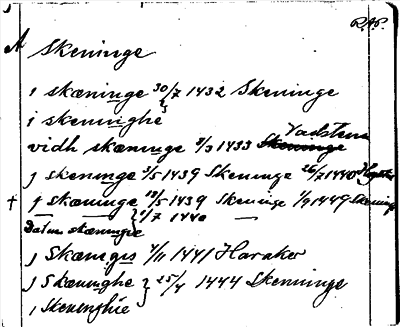 R.A.P.
A Skeninge
i skæninge 30/7 1432 Skeninge
i skenninghe
vidh skæninge 9/3 1433 Skeninge Vadstena
j skeninge 7/5 1439 Skeninge 26/7 1440
† j skæninge 19/5 1439 Skeninge 1/9 1449 Skeninge
Datum skæningie 1/7 1440
j Skænigis 4/11 1441 Haraker
j Skæninghe 25/4 1444 Skeninge
j Skenenghie